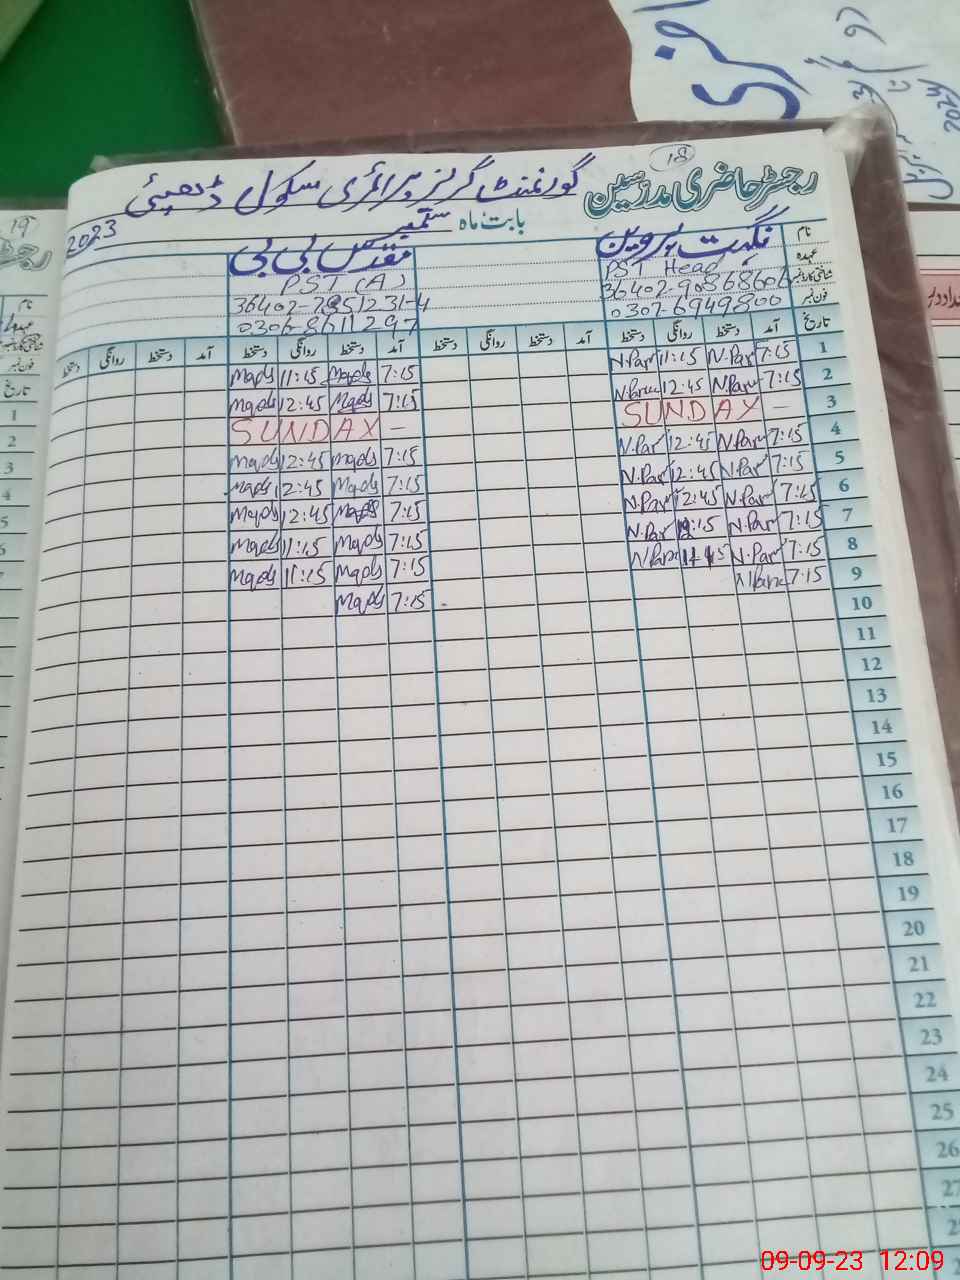 18
رجسٹر حاضری مدرسین گورنمنٹ گرلز پرائمری سکول
بابت ماہ ستمبر 2023
نام نگہت پروین مقدس بی بی
عہدہ PST Head PST (A)
شناختی کارڈ نمبر 36402-7851231-4
فون نمبر 0307-6949800 0306-8611297
تاریخ آمد دستخط روانگی دستخط آمد دستخط روانگی دستخط آمد دستخط روانگی دستخط آمد دستخط روانگی دستخط
1 7:15 N.Par 11:15 N.Par 7:15 Maqds 11:15 Maqds
2 7:15 N.Parw 12:45 N.Parw 7:15 Maqds 12:45 Maqds
3 — SUNDAY — SUNDAY
4 7:15 N.Par 12:45 N.Par 7:15 Maqds 12:45 Maqds
5 7:15 N.Par 12:45 N.Par 7:15 Maqds 12:45 Maqds
6 7:15 N.Par 12:45 N.Par 7:15 Maqds 12:45 Maqds
7 7:15 N.Par N.Par 7:15 Maqds 11:15 Maqds
8 7:15 N.Par N.Parw 7:15 Maqds 11:15 Maqds
9 7:15 N.Parw 7:15 Maqds
10
11
12
13
14
15
16
17
18
19
20
21
22
23
24
25
26
27
19
نام
فون نمبر
تاریخ
1
2
3
4
5
6
2024
09-09-23 12:09